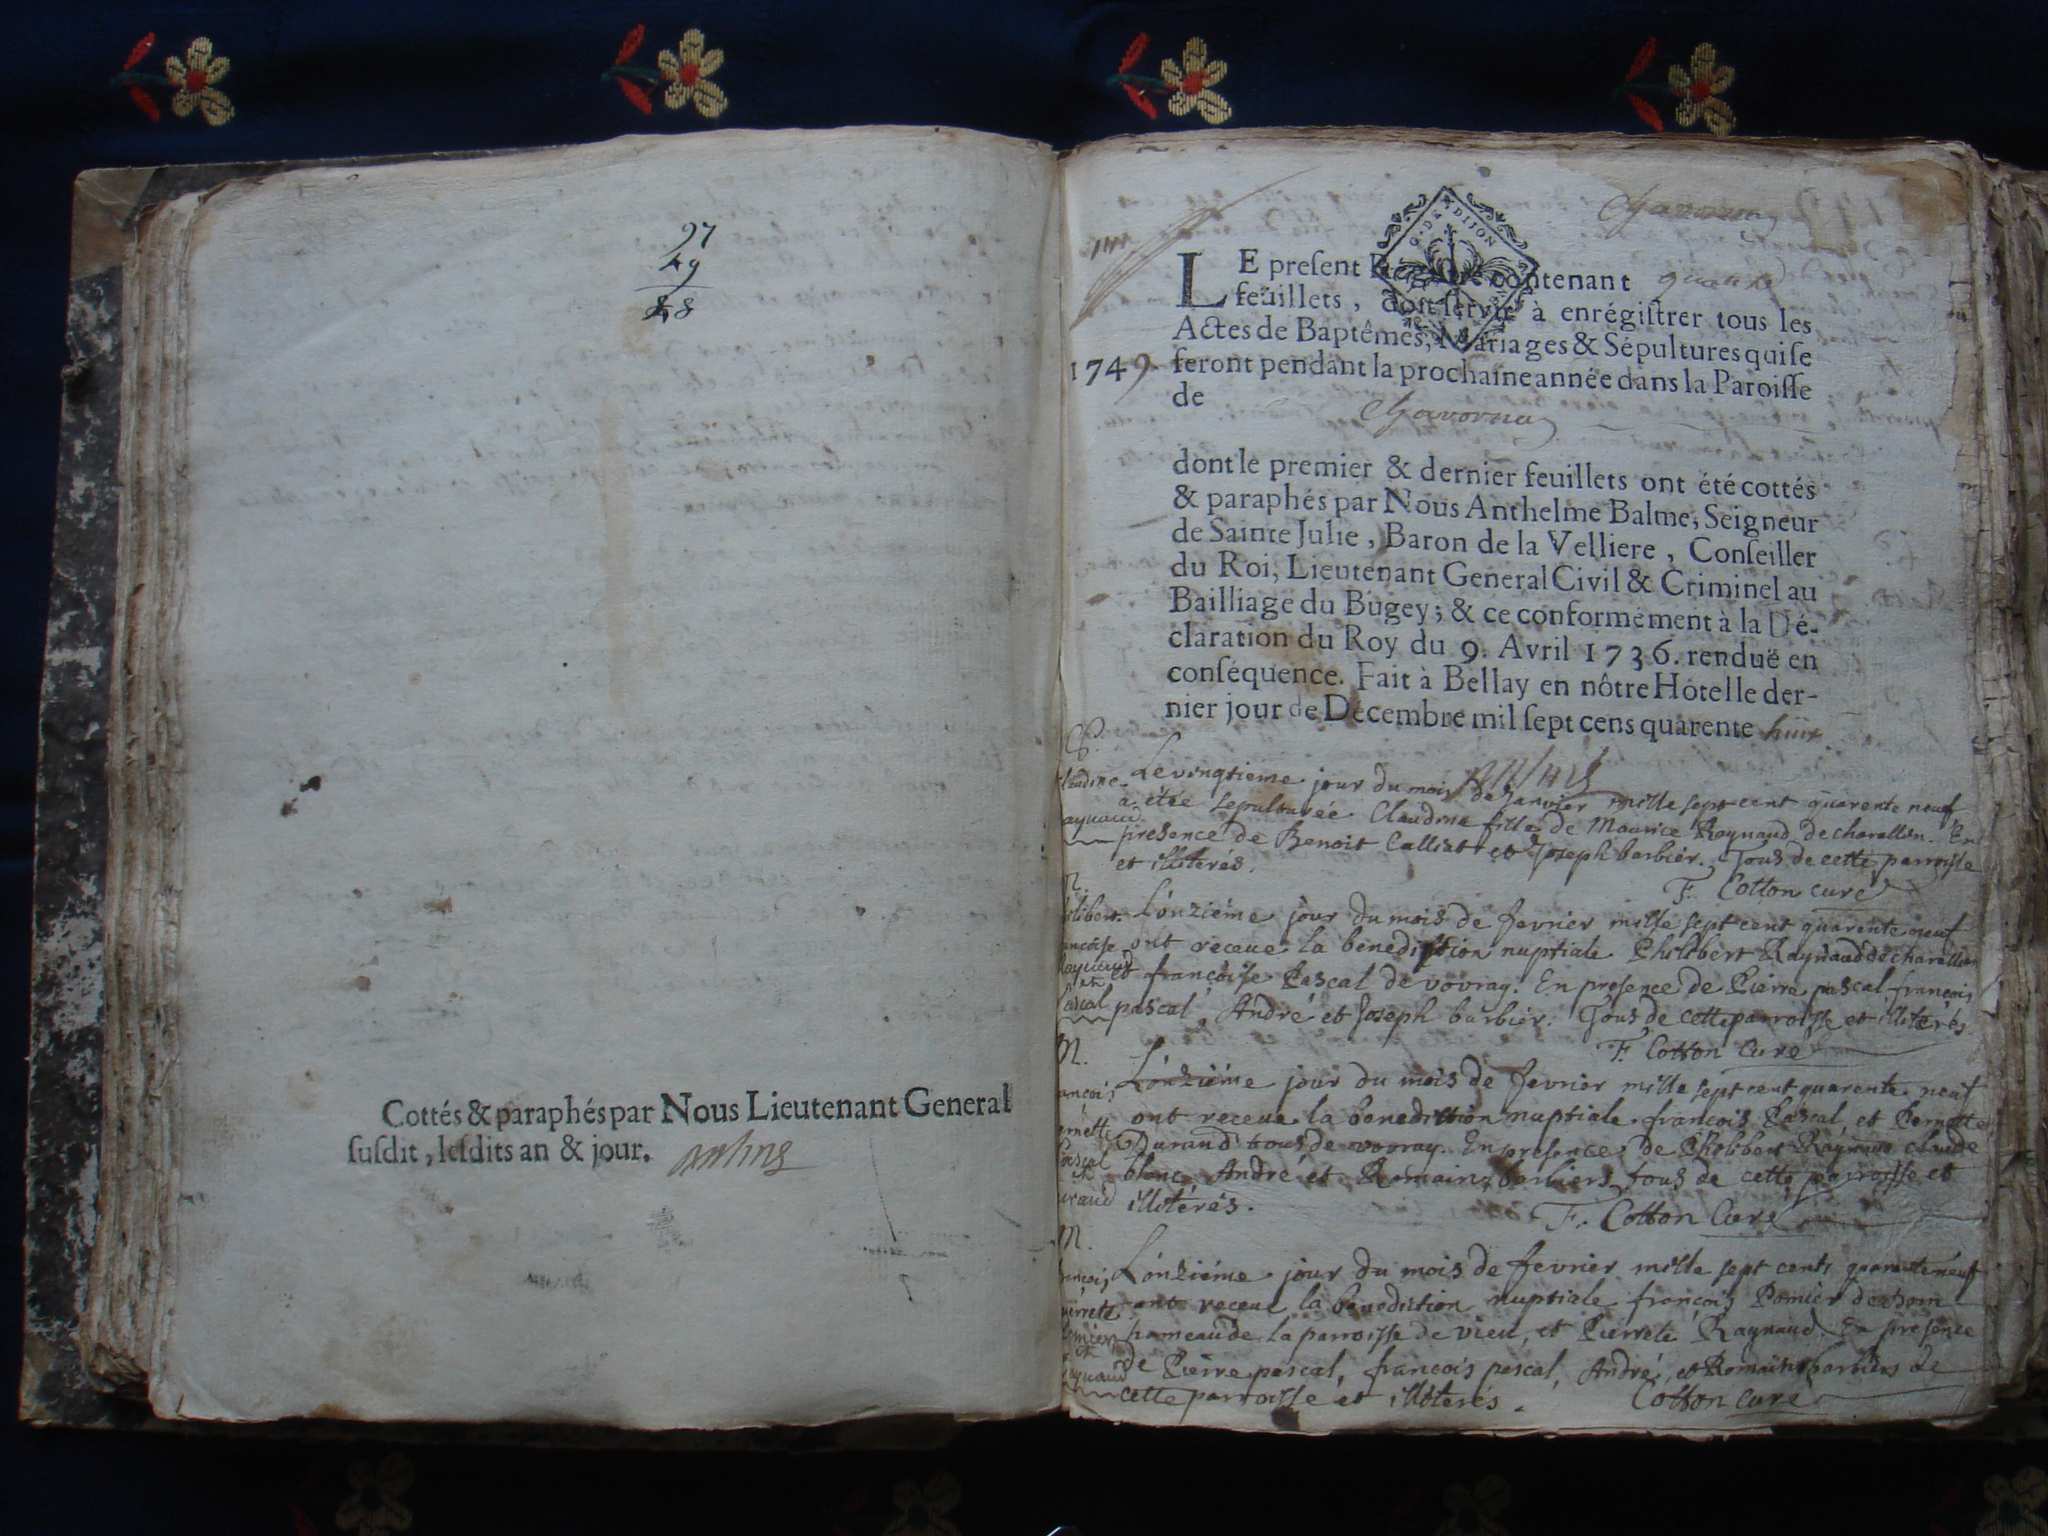 97
49
48
Cottés & paraphés par Nous Lieutenant General
susdit, lesdits an & jour.
Chavornay
G. DE DIJON
LE present Registre contenant quatre
feuillets, doit servir à enrégistrer tous les
Actes de Baptêmes, Mariages & Sépultures qui se
1749. feront pendant la prochaine année dans la Paroisse
de Chavornay
dont le premier & dernier feuillets ont été cottés
& paraphés par Nous Anthelme Balme, Seigneur
de Sainte Julie, Baron de la Velliere, Conseiller
du Roi, Lieutenant General Civil & Criminel au
Bailliage du Bugey; & ce conformément à la Dé-
claration du Roy du 9. Avril 1736. renduë en
conséquence. Fait à Bellay en nôtre Hôtel le der-
nier jour de Decembre mil sept cens quarente huit
S.
Claudine Le vingtieme jour du mois de Janvier mille sept cent quarente neuf
a étée sepulturée Claudine fille de Maurice Raynaud de charallin. En
Raynaud presence de Benoit Calliat et Joseph barbier. Tous de cette parroisse
et illiterés.
F. Cotton curé
M.
philibert L'onziéme jour du mois de fevrier mille sept cent quarente neuf
françoise ont receue la benediction nuptiale Philibert Raynaud de charallin
Raynaud et françoise Pascal de vovray. En presence de Pierre pascal, françois
et
Pascal pascal, André et Joseph barbier. Tous de cette parroisse et illiterés
F. Cotton Curé
M.
L'onziéme jour du mois de fevrier mille sept cent quarente neuf
françois ont receue la benediction nuptiale françois Pascal, et Pernette
pernette Durand tous de vovray. En presence de Philibert Raynaud claude
Pascal
et blanc, André et Romain barbiers tous de cette parroisse et
Durand illiterés.
F. Cotton Curé
M.
françois L'onziéme jour du mois de fevrier mille sept cents quarente neuf
pierrete ont receue la benediction nuptiale françois Pomier
Pomier hameau de la parroisse de vieu, et Pierrete Raynaud. En presence
et
Raynaud de Pierre pascal, françois pascal, André, et Romain barbiers de
cette parroisse et illiterés. Cotton curé